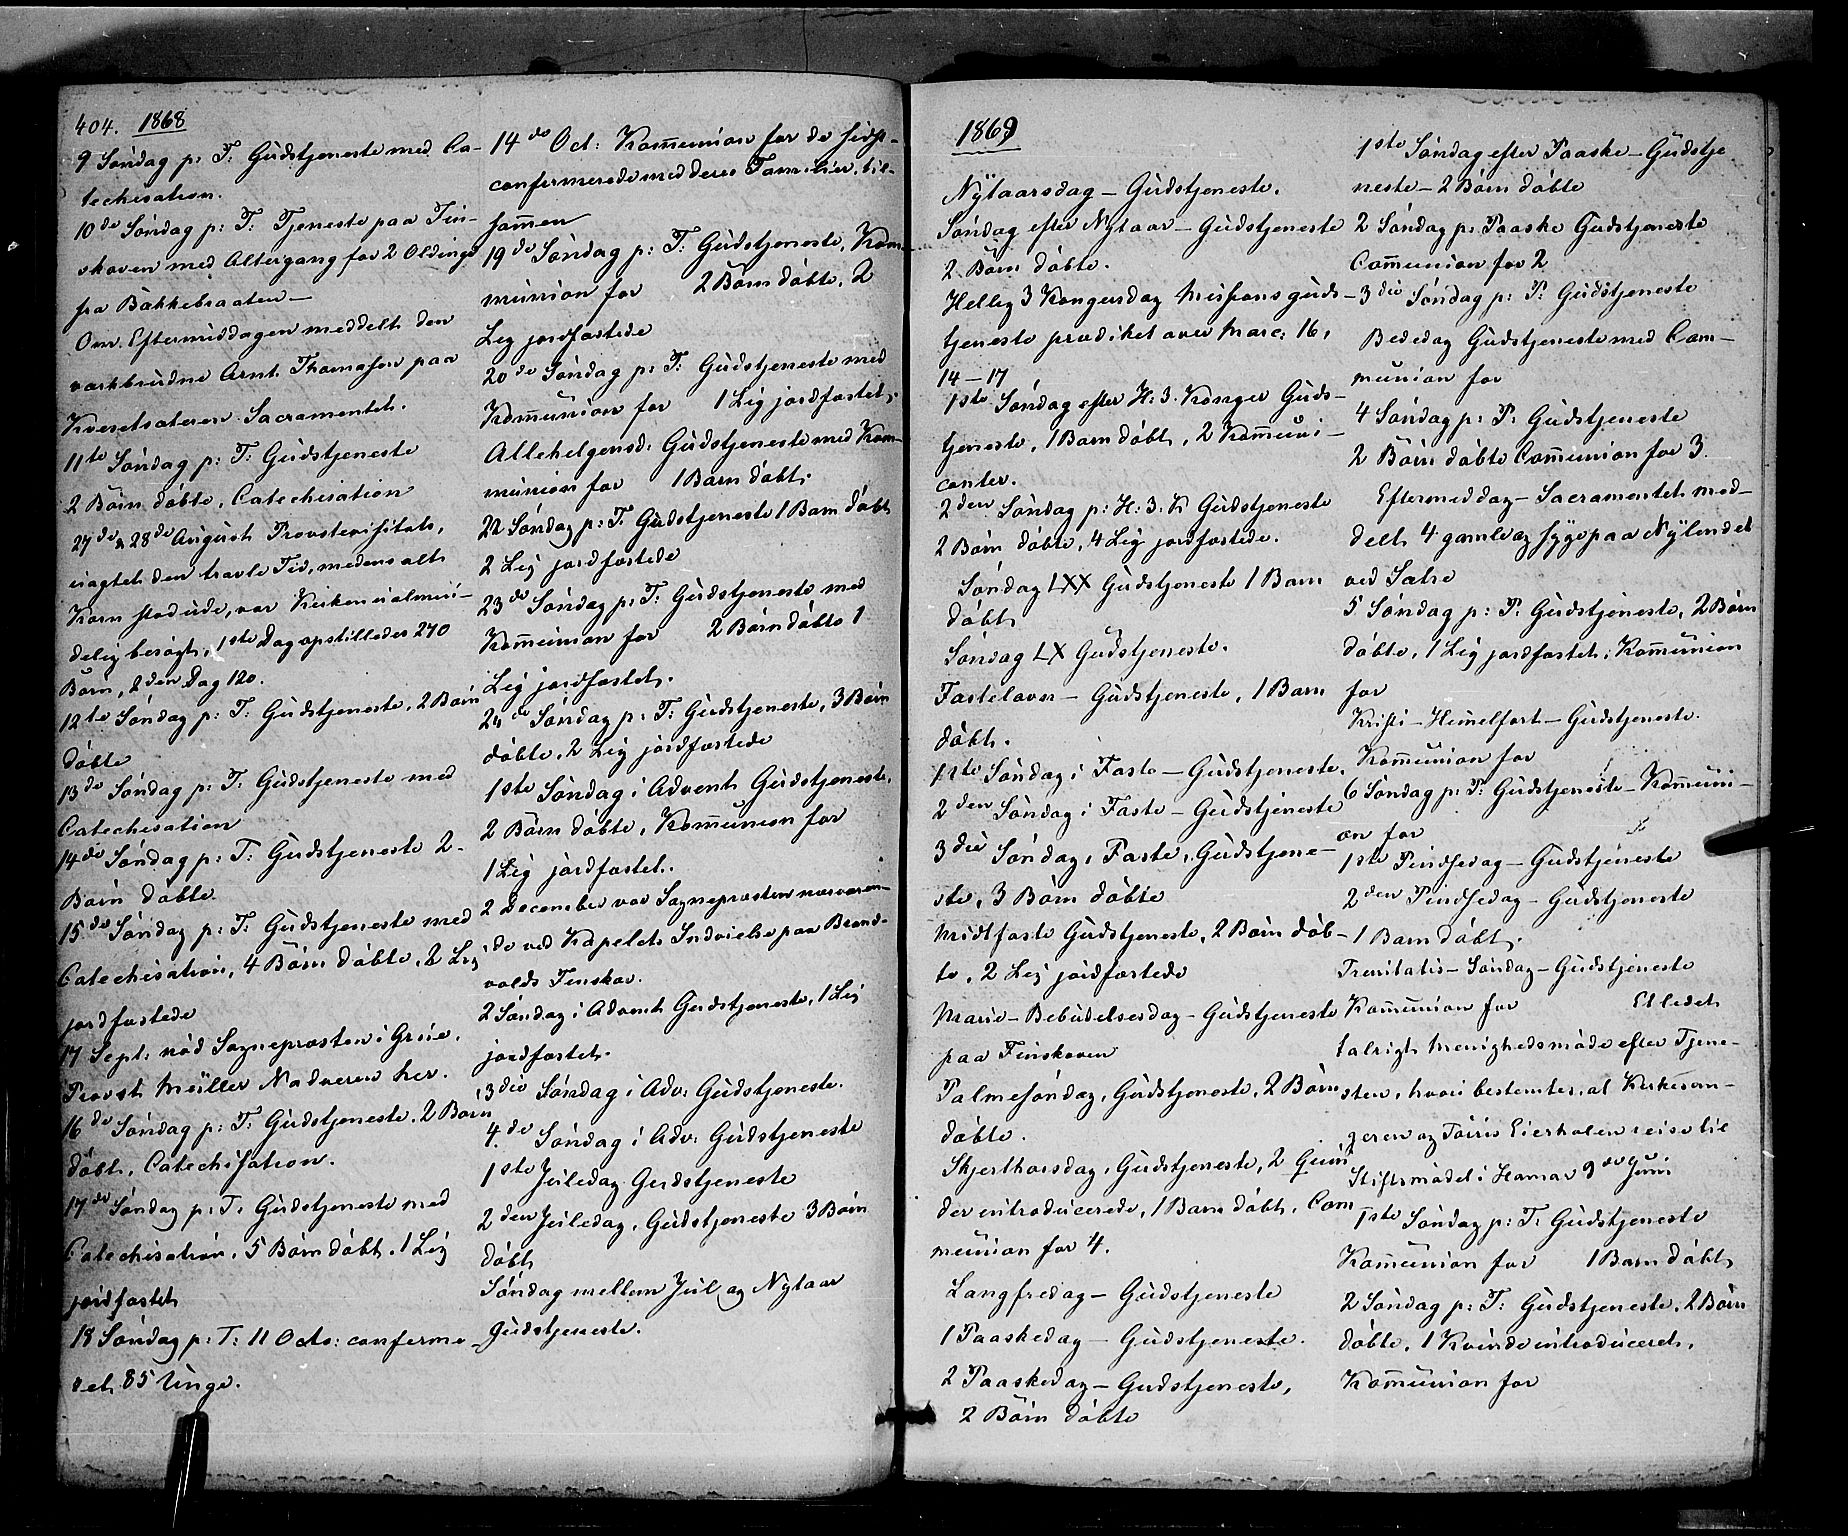 404. 1868
9 Søndag p: T: Gudstjeneste med Ca-
techisation.
10de Søndag p: T: Tjeneste paa Fin-
skoven med Altergang for 2 Oldinge
fra Bakkebraaten —
Om Eftermiddagen meddelt den
værkbrudne Arnt Thomasen paa
Sacramentet.
11te Søndag p: T: Gudstjeneste
2 Børn døbte, Catechisation
27de & 28de August Provstevisitats,
uagtet den travle Tid, medens alt
Korn stod ude, var Kirken ualmin-
delig besøgt, 1ste Dag opstilledes 270
Børn, 2den Dag 120.
12te Søndag p: T: Gudstjeneste, 2 Børn
døbte
13de Søndag p: T: Gudstjeneste med
Catechisation
14de Søndag p: T: Gudstjeneste 2
Børn døbte.
15de Søndag p: T: Gudstjeneste med
Catechisation, 4 Børn døbte, 2 Lig
jordfæstede
17 Sept: nød Sognepræsten i Grue,
Provst Müller Nadveren her.
16de Søndag p: T: Gudstjeneste, 2 Børn
døbt, Catechisation.
17de Søndag p: T: Gudstjeneste med
Catechisation, 5 Børn døbt, 1 Lig
jordfæstet
18 Søndag p: T: 11 Octo: confirme-
ret 85 Unge.
14de Oct: Kommunion for de sidst-
confirmerede med deres Familier, til-
sammen
19de Søndag p: T: Gudstjeneste, Kom-
munion for 2 Børn døbte, 2
Lig jordfæstede
20de Søndag p: T: Gudstjeneste med
Kommunion for 1 Lig jordfæstet,
Allehelgensd: Gudstjeneste med Kom-
munion for 1 Barn døbt.
22 Søndag p: T: Gudstjeneste 1 Barn døbt
2 Lig jordfæstede
23de Søndag p: T: Gudstjeneste med
Kommunion for 2 Børn døbte 1
Lig jordfæstet.
24de Søndag p: T: Gudstjeneste, 3 Børn
døbte, 2 Lig jordfæstede
1ste Søndag i Advent Gudstjeneste,
2 Børn døbte, Kommunion for
1 Lig jordfæstet.
2 December var Sognepræsten nærværen-
de ved Kapelets Indvielse paa Brand-
volds Finskov.
2 Søndag i Advent Gudstjeneste, 1 Lig
jordfæstet.
3die Søndag i Adv: Gudstjeneste.
4.de Søndag i Adv: Gudstjeneste
1ste Juledag Gudstjeneste
2den Juledag, Gudstjeneste 3 Børn
døbt
Søndag mellem Jul og Nytaar
Gudstjeneste.
1869
Nytaarsdag — Gudstjeneste.
Søndag efter Nytaar — Gudstjeneste
2 Børn døbte.
Hellig 3 Kongersdag Missionsguds-
tjeneste prædiket over Marc: 16,
14–17
1ste Søndag efter H: 3. Konger Guds-
tjeneste, 1 Barn døbt, 2 Kommuni-
canter.
2den Søndag p: H: 3: K Gudstjeneste
2 Børn døbte, 4 Lig jordfæstede.
Søndag LXX Gudstjeneste 1 Barn
døbt
Søndag LX Gudstjeneste.
Fastelaven — Gudstjeneste, 1 Barn
døbt.
1ste Søndag i Faste — Gudstjeneste,
2den Søndag i Faste — Gudstjeneste
3die Søndag i Faste, Gudstjene-
ste, 3 Børn døbte
Midtfaste Gudstjeneste, 2 Børn døb-
te, 2 Lig jordfæstede
Marie-Bebudelsesdag — Gudstjeneste
paa Finskoven
Palmesøndag, Gudstjeneste, 2 Børn
døbte.
Skjærthorsdag, Gudstjeneste, 2 Qvin-
der introducerede, 1 Barn døbt, Com-
munion for 4.
Langfredag — Gudstjeneste
1 Paaskedag — Gudstjeneste.
2 Paaskedag — Gudstjeneste,
2 Børn døbte
1ste Søndag efter Paaske — Gudstje
neste — 2 Børn døbte
2 Søndag p: Paaske Gudstjeneste
Communion for 2
3die Søndag p: P: Gudstjeneste
Bededag Gudstjeneste med Com-
munion for
4 Søndag p: P: Gudstjeneste
2 Børn døbte Communion for 3.
Eftermiddag — Sacramentet med-
delt 4 gamle og syge paa Nylendet
ved Sætre
5 Søndag p: P: Gudstjeneste, 2 Børn
døbte, 1 Lig jordfæstet, Kommunion
for
Kristi-Himmelfart — Gudstjeneste.
Kommunion for
6 Søndag p: P: Gudstjeneste — Kommuni-
on for
1ste Pindsedag — Gudstjeneste
2den Pindsedag — Gudstjeneste
1 Barn døbt.
Trinitatis-Søndag — Gudstjeneste
Kommunion for Et lidet
talrigt Menighedsmøde efter Tjene-
sten, hvori bestemtes, at Kirkesan-
geren og reise til
Stiftsmødet i Hamar 9de Juni
1ste Søndag p: T: Gudstjeneste
Kommunion for 1 Barn døbt,
2 Søndag p: T: Gudstjeneste, 2 Børn
døbte, 1 Kvinde introduceret,
Kommunion for